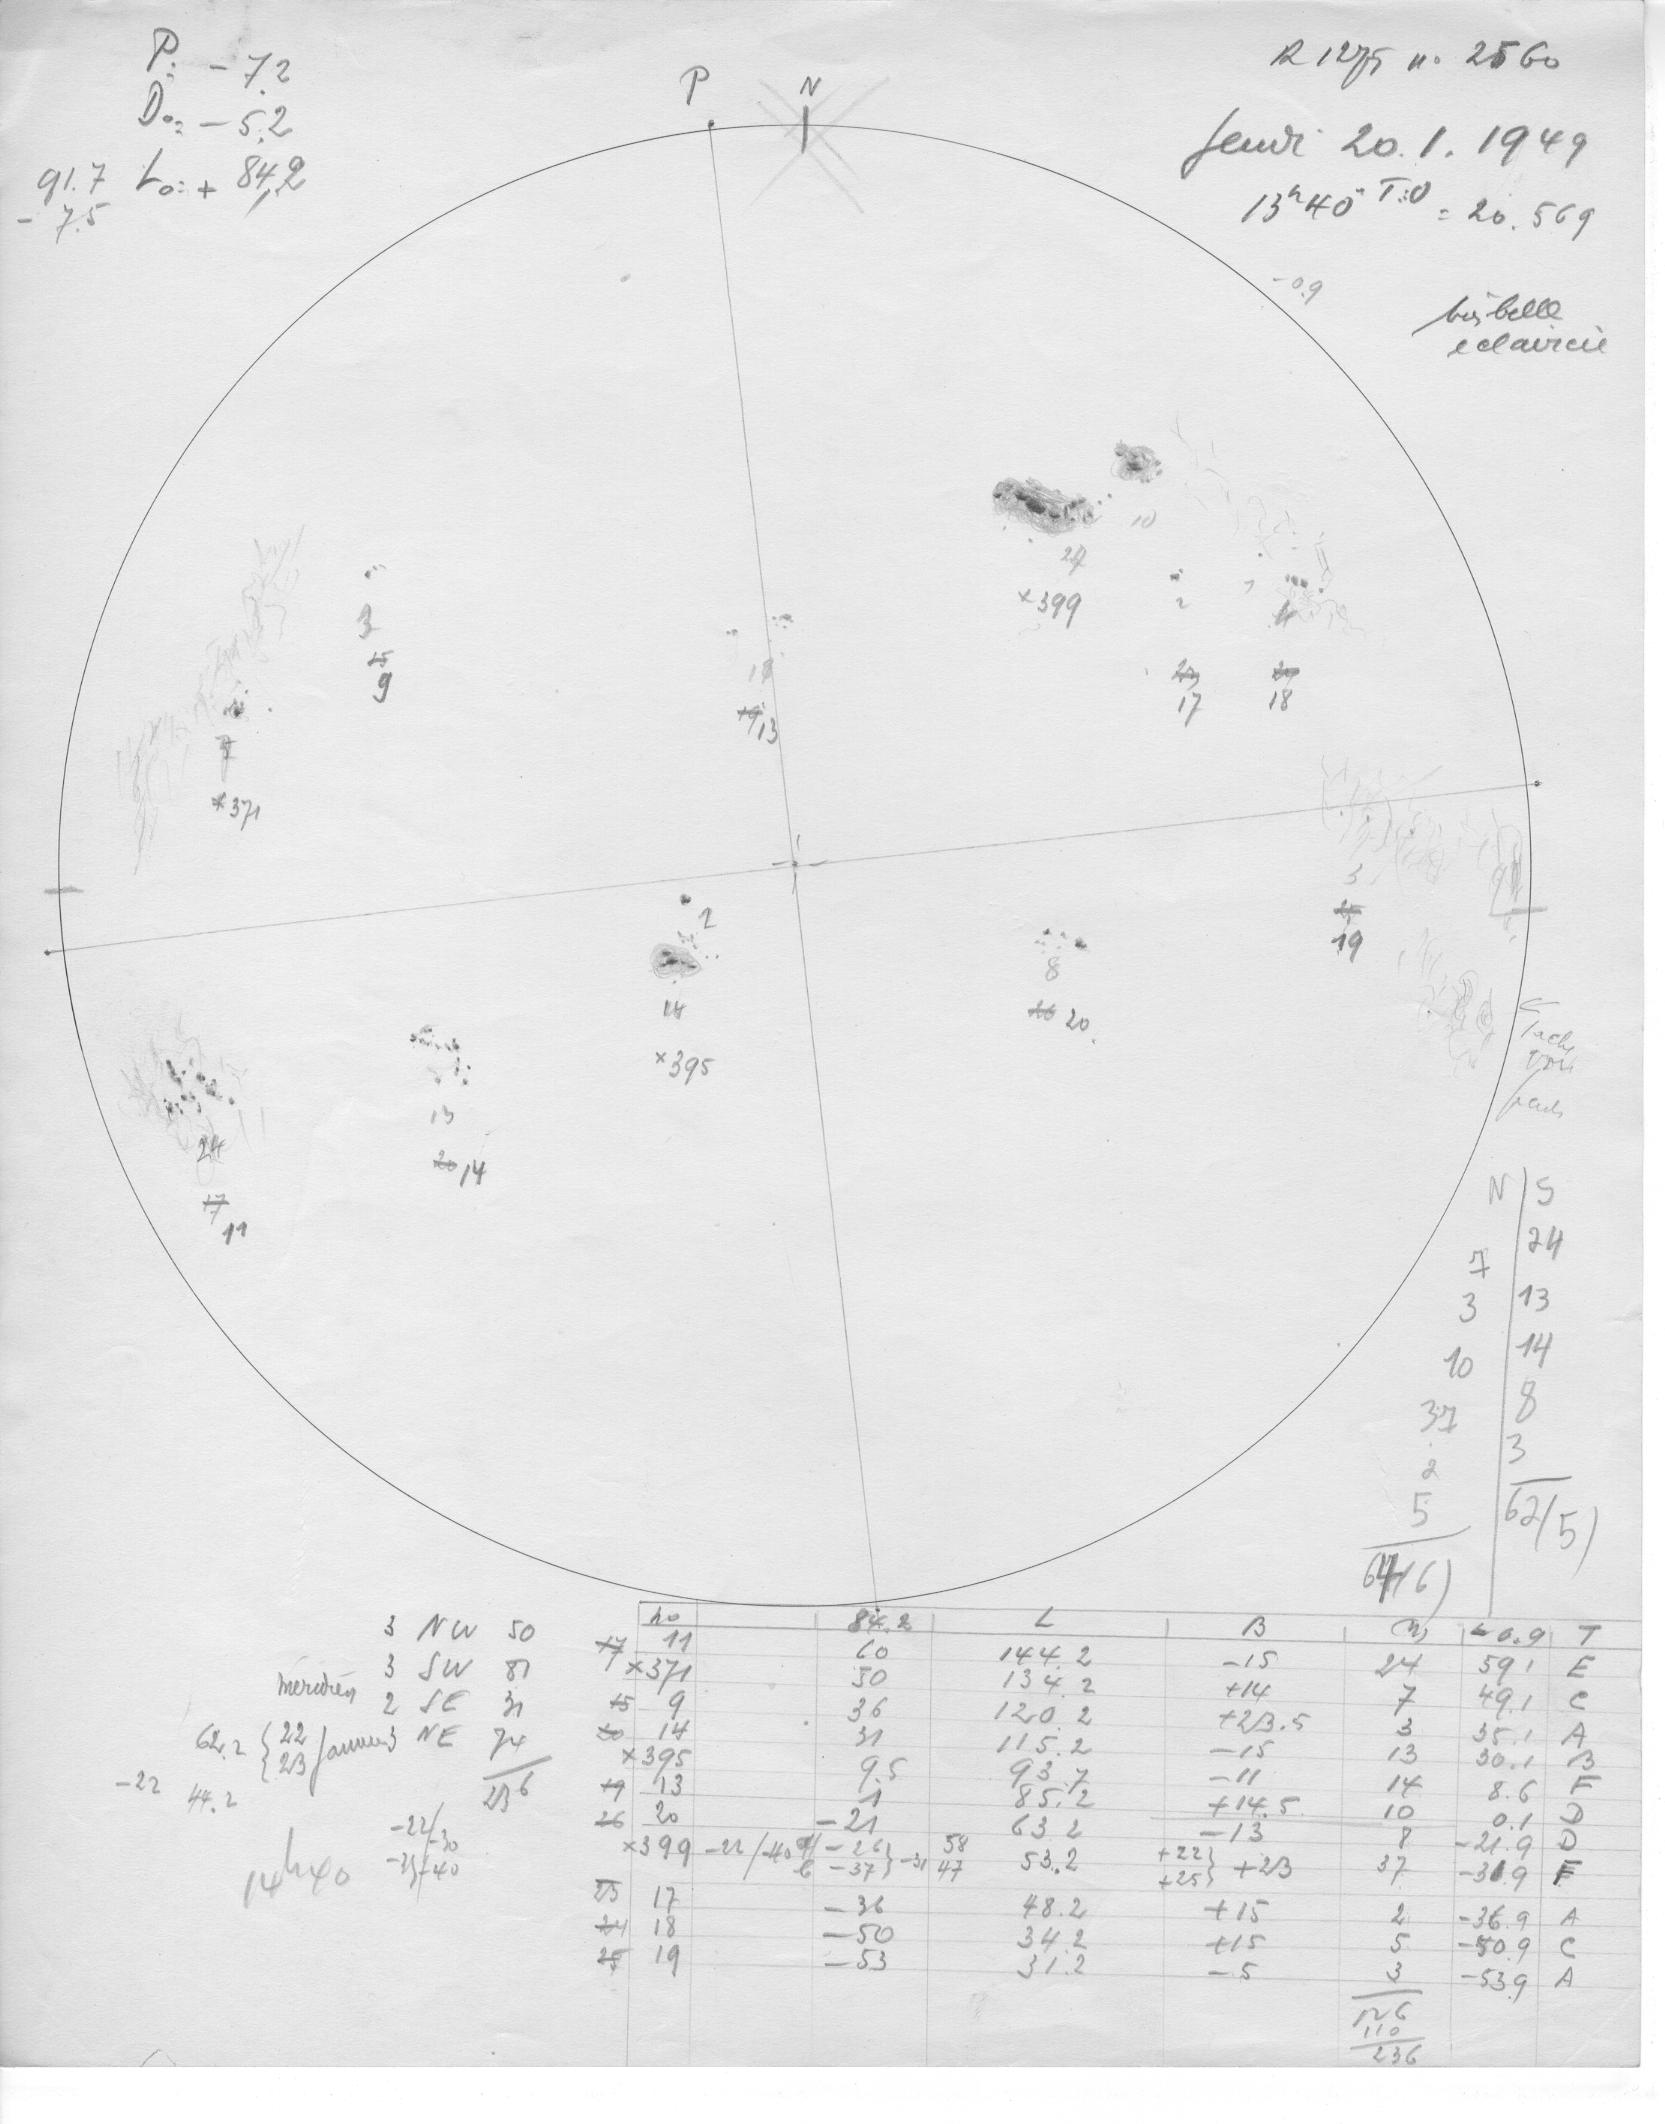 P: - 7.2
Do= - 5.2
91.7 Lo= + 84.2
- 7.5
P N
R 1275 n. 2560
Jeudi 20.1.1949
13h40 = 20.569
-0.9
très belle
éclaircie
10
24
×399
3
15
9
2
23
17
4
24
18
7
×371
19 13
2
14
×395
8
26 20
3
25
19
13
20 14
24
17
11
Tache
N S
24
7
3 13
10 14
37 8
2 3
5 62/5)
64/6)
no 84.2 L B -0.9 T
17 11 60 144.2 -15 24 59.1 E
×371 50 134.2 +14 7 49.1 C
15 9 36 120.2 +23.5 3 35.1 A
20 14 31 115.2 -15 13 30.1 B
×395 9.5 93.7 -11 14 8.6 F
19 13 1 85.2 +14.5 10 0.1 D
26 20 -21 63.2 -13 8 -21.9 D
×399 -26 -37 } -31 58 47 53.2 +22 +25 } +23 37 -31.9 F
23 17 -36 48.2 +15 2 -36.9 A
24 18 -50 34.2 +15 5 -50.9 C
25 19 -53 31.2 -5 3 -53.9 A
126
110
236
3 NW 50
3 SW 81
méridien 2 SE 31
3 NE 74
236
62.2 { 22 23
-22 44.2
-22/-30
14h40